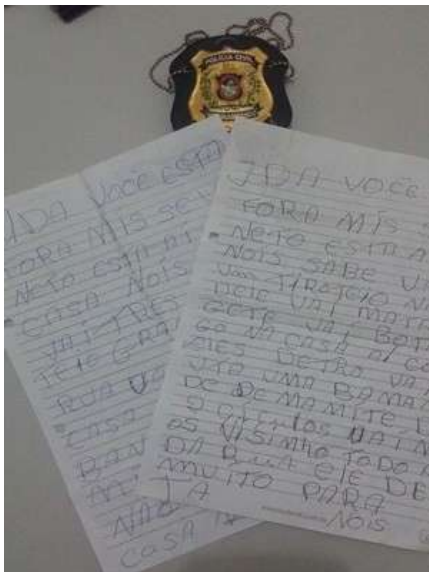 POLÍCIA CIVIL
VOCÊ ESTA
FORA MIS SEU
NETO ESTA AI
CASA NOIS
VAI TRES
TEIO GRA
RUA VA
CASA
BAN
NAO
CASA
JDA VOCÊ
FORA MIS
NETO ESTA A
NOIS SABE
UM TIROTEIO NA
VAI MATA
GETE VAI BOTA
GO NA CASA AI CO
EIES DETRO VA
UTA UMA BAMA
DE DEMAMITE
OS VISIMHO TODO
DA RUA ELE DE
MUITO PARA
NOIS